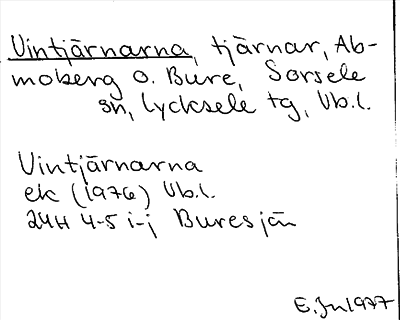 Vintjärnarna, tjärnar, Ab-
moberg o. Bure, Sorsele
sn, Lycksele tg, Vb.l.
Vintjärnarna
ek (1976) Vb.l.
24H 4-5 i-j Buresjön
E. 1977